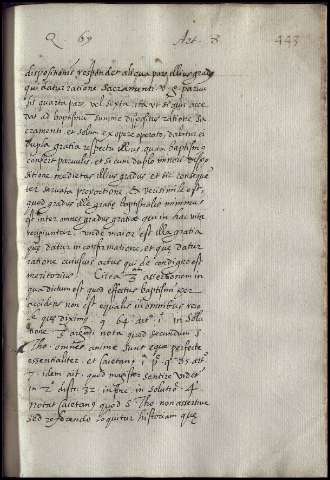 Q. 69 Art. 8 443
dispositionis respondet aliqua pars illius gradus
qui datur ratione sacramenti v. g. parvu
sit quarta pars vel sexta ita ut si qui acce
dat ad baptismu summe dispositus ratione sa
cramenti et solum ex opere operato, dabitur ei
dupla gratia respectu illius quam baptismus
confert parvulis, et si cum duplo minori dispo
sitione medietas illius gradus et sic conseque
ter servata proportione, & verisimile est,
quod gradus ille gratie baptismalis minimus
est inter omnes gradus gratiae qui in hac vita
recipiuntur unde maior est illa gratia
que datur in confirmatione, et que datur
ratione cuiusvis actus qui de condigno est
meritorius Circa 3 assertionem in
qua dictum est quod effectus baptismi per
accidens non est equalis in omnibus vide
que diximus q 64 art 1 in solu
tione 3 arg nota quod secundum s
Tho. omnes anime sunt eque perfecte
essentialiter, et Caietanus 1 p q 85 art
7 idem ait, quod magister sentire videtur
in 2 dist. 32 in fine, in solutio 4
notat Caietanus quod s Tho non assertive
sed referendo loquitur historiam que